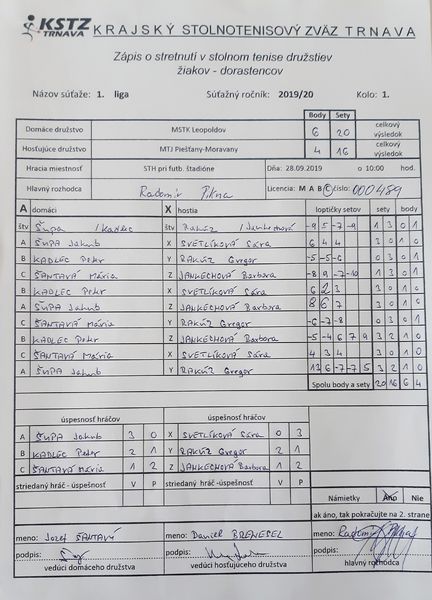 KSTZ TRNAVA KRAJSKÝ STOLNOTENISOVÝ ZVÄZ TRNAVA
Zápis o stretnutí v stolnom tenise družstiev
žiakov - dorastencov
Názov súťaže: 1. liga Súťažný ročník: 2019/20 Kolo: 1.
Body Sety
Domáce družstvo MSTK Leopoldov 6 20 celkový výsledok
Hosťujúce družstvo MTJ Piešťany-Moravany 4 16 celkový výsledok
Hracia miestnosť STH pri futb. štadióne Dňa: 28.09.2019 o 10:00 hod.
Hlavný rozhodca Radomír Licencia: M A B C číslo: 000489
A domáci X hostia loptičky setov sety body
štv Šupa / Kadlec štv Rakúz / Jankechová -9 5 -7 -9 1 3 0 1
A ŠUPA Jakub X SVETLÍKOVÁ Sára 6 4 4 3 0 1 0
B KADLEC Peter Y RAKÚZ Gregor -5 -5 -6 0 3 0 1
C ŠANTAVÁ Mária Z JANKECHOVÁ Barbora -8 9 -7 -10 1 3 0 1
B KADLEC Peter X SVETLÍKOVÁ Sára 6 2 3 3 0 1 0
A ŠUPA Jakub Z JANKECHOVÁ Barbora 8 6 7 3 0 1 0
C ŠANTAVÁ Mária Y RAKÚZ Gregor -6 -7 -8 0 3 0 1
B KADLEC Peter Z JANKECHOVÁ Barbora -5 -4 6 7 9 3 2 1 0
C ŠANTAVÁ Mária X SVETLÍKOVÁ Sára 4 3 4 3 0 1 0
A ŠUPA Jakub Y RAKÚZ Gregor 6 -7 -7 5 3 2 1 0
Spolu body a sety 20 16 6 4
úspesnosť hráčov úspesnosť hráčov
A ŠUPA Jakub 3 0 X SVETLÍKOVÁ Sára 0 3
B KADLEC Peter 2 1 Y RAKÚZ Gregor 2 1
C ŠANTAVÁ Mária 1 2 Z JANKECHOVÁ Barbora 1 2
striedaný hráč - úspešnosť V P striedaný hráč -úspešnosť V P
Námietky Áno Nie
ak áno, tak pokračujte na 2. strane
meno: Jozef ŠANTAVÝ meno: Daniel BRENESEL meno: Radomír
podpis: podpis: podpis:
vedúci domáceho družstva vedúci hosťujúceho družstva hlavný rozhodca